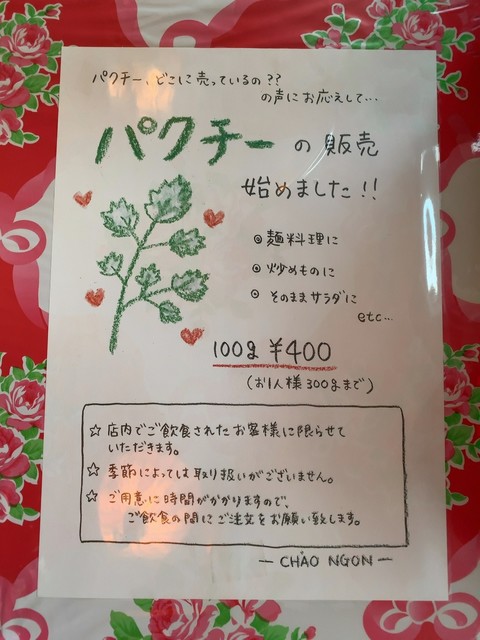 パクチー、どこに売っているの??
の声にお応えして…
パクチーの販売
始めました!!
◎ 麺料理に
◎ 炒めものに
◎ そのままサラダに
etc…
100g ¥400
(お1人様300gまで)
☆ 店内でご飲食されたお客様に限らせて
いただきます。
☆ 季節によっては取り扱いがございません。
☆ ご用意に時間がかかりますので、
ご飲食の間にご注文をお願い致します。
— CHẢO NGON —